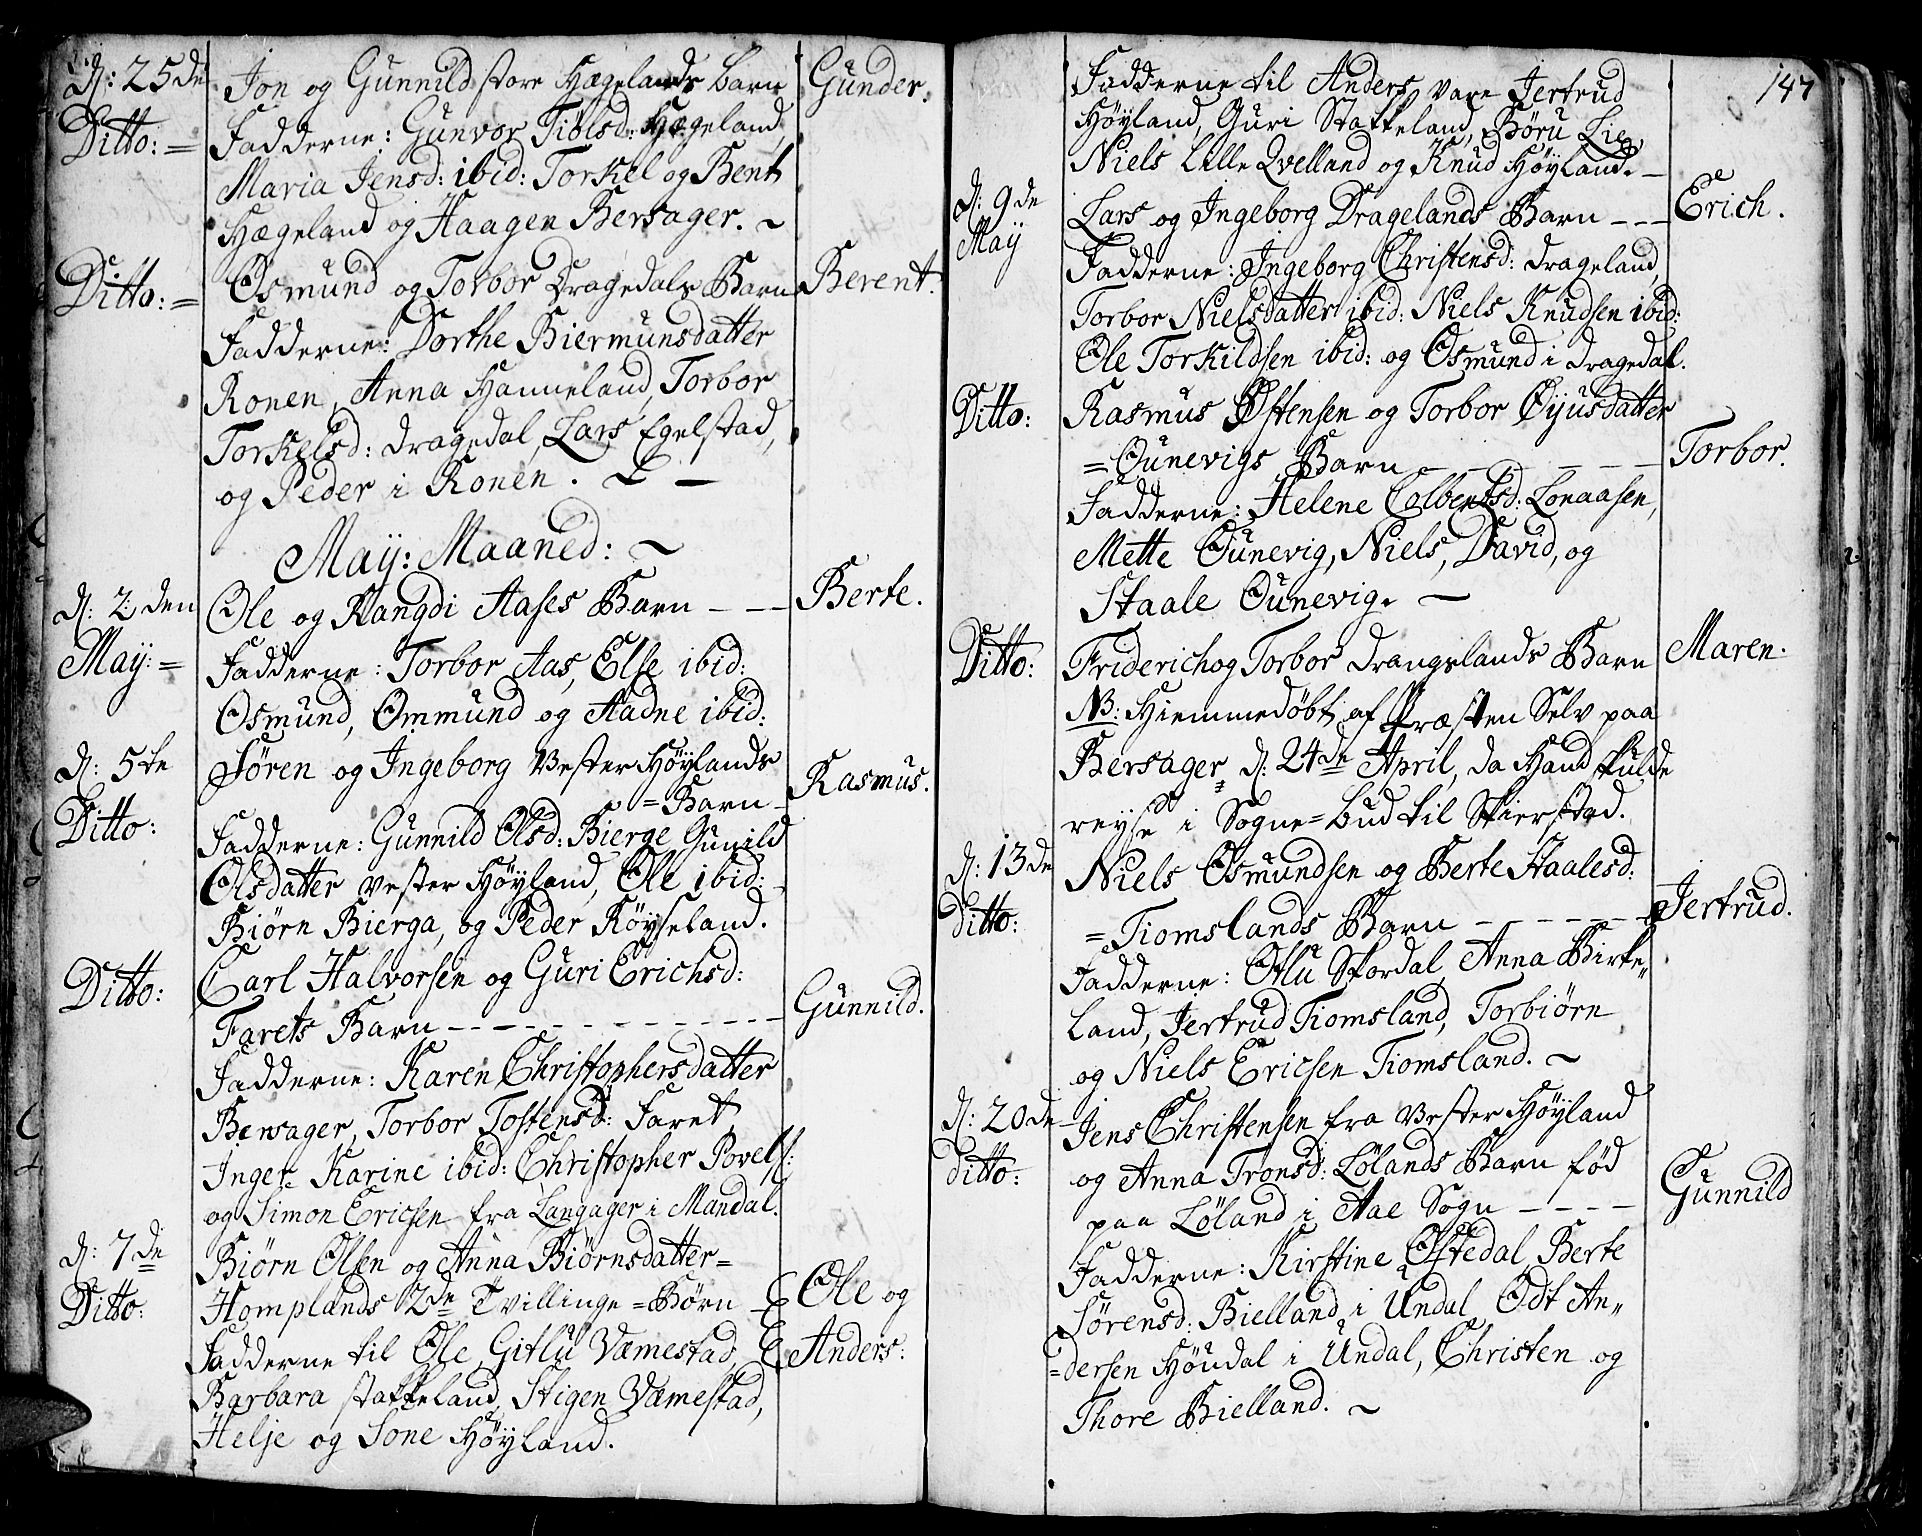 D: 25de Jon og Gunnild store Hægelands barn Gunder.
Ditto:= Fadderne: Gunvor Tiølsd: Hægeland,
Maria Jensd: ibid: Torkel og Bent
Hægeland og Haagen Bersager. ~
Ditto:= Osmund og Torbor Dragedals Barn Berent.
Fadderne: Dorthe Biermunsdatter
Ronen, Anna Hanneland, Torbor
Torkelsd: dragedal, Lars Egelstad,
og Peder i Ronen. ~ —
May: Maaned: ~
D: 2den Ole og Rangdi Aases Barn - - - Berte.
May:= Fadderne: Torbor Aas, Else ibid:
Osmund, Ommund og Aadne ibid:
D: 5te Søren og Ingeborg Vester Høylands
=Barn- Rasmus.
Ditto: Fadderne: Gunnild Olsd: Bierge Gunild
Olsdatter Vester Høyland, Ole ibid:
Biørn Bierga, og Peder Røyseland.
Ditto: Carl Halvorsen og Guri Erichsd:
Farets Barn - - - - - - - - - - Gunnild.
Fadderne: Karen Christophersdatter
Bersager, Torbor Tostensd: Faret,
Inger Karine ibid: Christopher Povels:
og Simon Ericsen fra Langager i Mandal.
D: 7de Biørn Olsen og Anna Biørnsdatter=
Ditto: Homplands 2de Tvillinge=Børn Ole og
Fadderne til Ole Gitlu Væmestad, Anders:
Barbara stakkeland, Stigen Væmestad,
Helje og Sone Høyland.
147
Fadderne til Anders vare Jertrud
Høyland, Guri Stakkeland, Børu Lie,
Niels Lille Qvelland og Knud Høyland. —
D: 9de Lars og Ingeborg Dragelands Barn - - - Erich.
May Fadderne: Ingeborg Christensd: drageland,
Torbor Nielsdatter ibid: Niels Knudsen ibid:
Ole Torkildsen ibid: og Osmund i dragedal.
Ditto: Rasmus Østensen og Torbor Øyusdatter
=Ounevigs Barn - - - - - - Torbor.
Fadderne: Helene Colbensd: Lonaasen,
Mette Ounevig, Niels, David, og
Staale Ounevig. —
Ditto: Friderich og Torbor Drangslands Barn Maren.
NB: Hiemmedøbt af Præsten Selv paa
Bersager, d: 24de April, da Hand skulde
reyse i Sogne=bud til Skierstad.
D: 13de Niels Osmundsen og Berte Staalesd:
ditto: =Tiomslands Barn - - - - - - - Jertrud.
Fadderne: Olu Skordal, Anna Birke„
land, Jertrud Tiomsland, Torbiørn
og Niels Ericsen Tiomsland. ~
D: 20de Jens Christensen fra Vester Høyland
ditto: og Anna Tronsd: Lølands Barn fød
paa Løland i Aae Sogn - - - - Gunnild
Fadderne: Kirstine Ostedal Berte
Sørensd: Bielland i Undal, Odt An„
=dersen Høudal i Undal, Christen og
Thore Bielland. ~